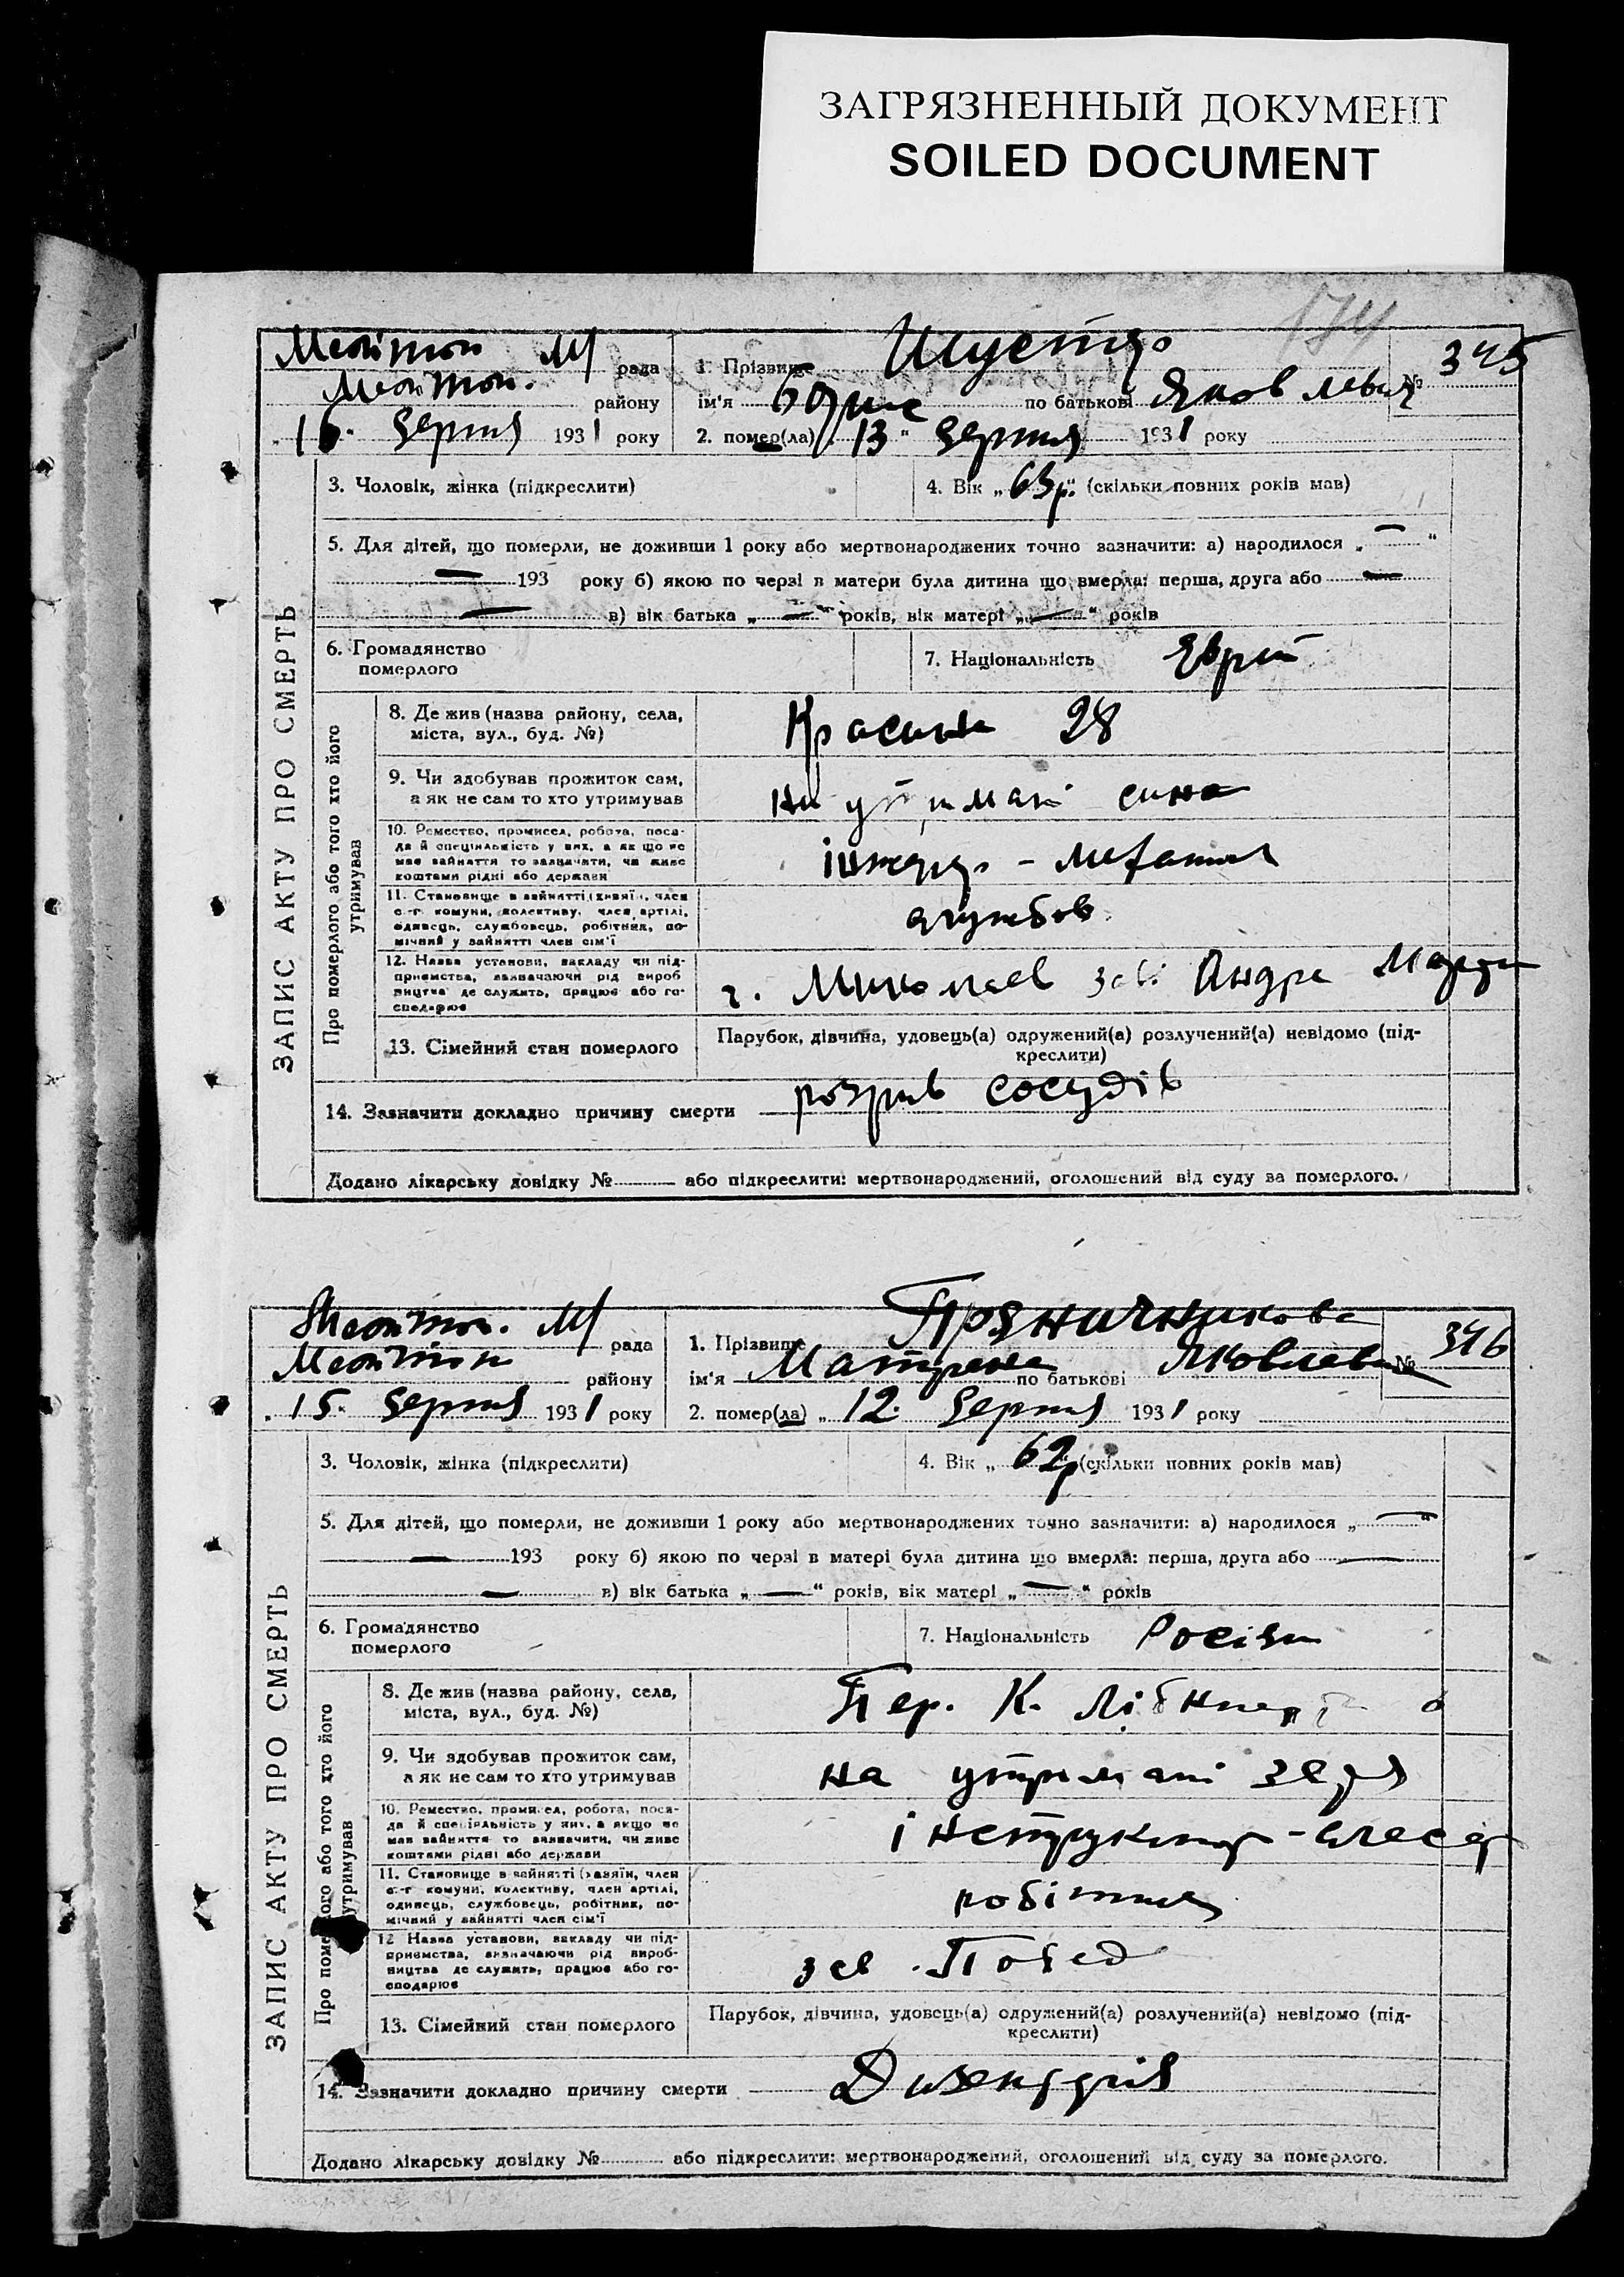 ЗАГРЯЗНЕННЫЙ ДОКУМЕНТ
SOILED DOCUMENT
174
рада
району
15. Серпня 1931 року
1. Прізвище Шустер
ім'я Борис по батькові Яковлевич
2. помер(ла) „13“ Серпня 1931 року
№ 345
ЗАПИС АКТУ ПРО СМЕРТЬ
3. Чоловік, жінка (підкреслити)
4. Вік „63р.“ (скільки повних років мав)
5. Для дітей, що померли, не доживши 1 року або мертвонароджених точно зазначити: а) народилося „—“
— 193 року б) якою по черзі в матери була дитина що вмерла: перша, друга або —
— в) вік батька „—“ років, вік матері „—“ років
6. Громадянство
померлого
7. Національність Єврей
Про померлого або того хто його
утримував
8. Де жив (назва району, села,
міста, вул., буд. №)
Красина 28
9. Чи здобував прожиток сам,
а як не сам то хто утримував
на утримані сина
10. Ремество, промисел, робота, поса-
да й спеціяльність у них, а як що не
мав зайняття то зазначити, чи живе
коштами рідні або держави
інженер -
11. Становище в зайнятті (хазяїн, член
с.-г комуни, колективу, член артілі,
одинець, службовець, робітник, по-
мічний у зайнятті член сім'ї
службов.
12. Назва установи, закладу чи під-
приємства, зазначаючи рід вироб
ництва де служить, працює або го-
сподарює
г. Миколаев зав. Андре Марти
13. Сімейний стан померлого
Парубок, дівчина, удовець(а) одружений(а) розлучений(а) невідомо (під-
креслити)
14. Зазначити докладно причину смерти розрив сосудів
Додано лікарську довідку № або підкреслити: мертвонароджений, оголошений від суду за померлого.
рада
району
15. Серпня 1931 року
1. Прізвище Пряничникова
ім'я Матрена по батькові Яковлевна
2. помер(ла) „12. Серпня 1931 року
№ 346
ЗАПИС АКТУ ПРО СМЕРТЬ
3. Чоловік, жінка (підкреслити)
4. Вік „62р.“ (скільки повних років мав)
5. Для дітей, що померли, не доживши 1 року або мертвонароджених точно зазначити: а) народилося „—“
— 193 року б) якою по черзі в матері була дитина що вмерла: перша, друга або —
— в) вік батька „—“ років, вік матері „—“ років
6. Громадянство
померлого
7. Національність Росіян
Про померлого або того хто його
утримував
8. Де жив (назва району, села,
міста, вул., буд. №)
Пер. К. Лібкнехта 6
9. Чи здобував прожиток сам,
а як не сам то хто утримував
на утримані зятя
10. Ремество, промисел, робота, поса-
да й спеціяльність у них, а якщо не
мав зайняття то зазначити, чи живе
коштами рідні або держави
інструктор - слесар
11. Становище в зайнятті (хазяїн, член
с.-г комуни, колективу, член артілі,
одинець, службовець, робітник, по-
мічний у зайнятті член сім'ї
робітник
12 Назва установи, закладу чи під-
приємства, зазначаючи рід вироб-
ництва де служить, працює або го-
сподарює
зав.
13. Сімейний стан померлого
Парубок, дівчина, удовець(а) одружений(а) розлучений(а) невідомо (під-
креслити)
14. Зазначити докладно причину смерти Дизентерія
Додано лікарську довідку № або підкреслити: мертвонароджений, оголошений від суду за померлого.